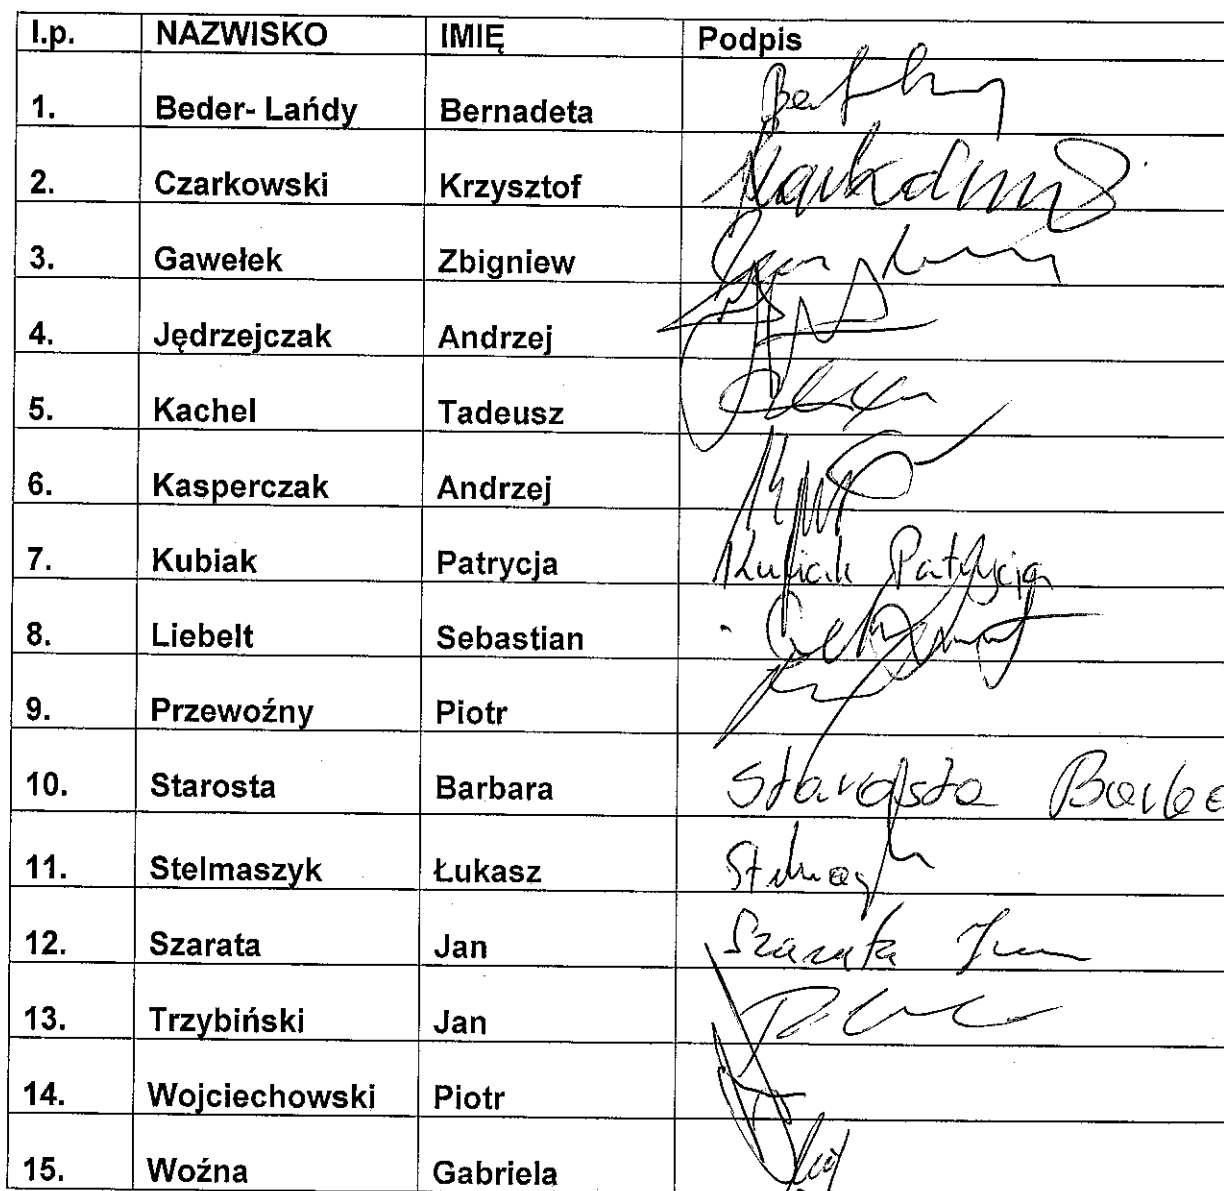 l.p. NAZWISKO IMIĘ Podpis
1. Beder- Lańdy Bernadeta
2. Czarkowski Krzysztof
3. Gawełek Zbigniew
4. Jędrzejczak Andrzej
5. Kachel Tadeusz
6. Kasperczak Andrzej
7. Kubiak Patrycja Kubiak Patrycja
8. Liebelt Sebastian
9. Przewoźny Piotr
10. Starosta Barbara Starosta
11. Stelmaszyk Łukasz
12. Szarata Jan Szarata Jan
13. Trzybiński Jan
14. Wojciechowski Piotr
15. Woźna Gabriela